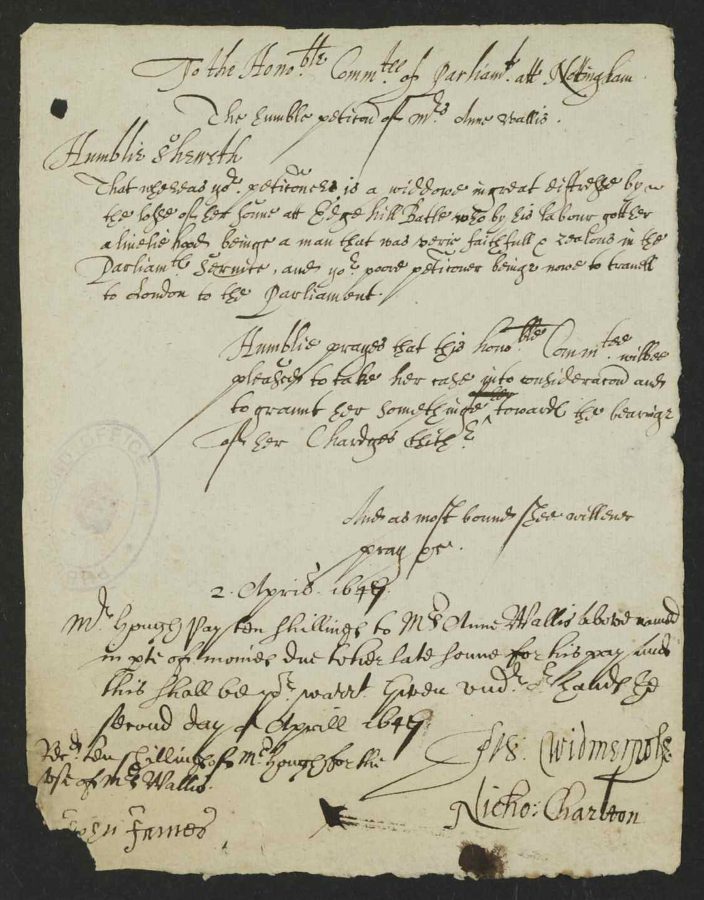 To the Honoble Commtee of Parliamt att Nottingham
The humble peticon of Mrs Anne Wallis.
Humblie Sheweth
That whereas yor. peticoner is a widdowe in great distresse by
the losse of her sonne att Edge hill Batle who by his labour gott her
a livelie hood beinge a man that was verie faithfull & zealous in the
Parliamts service, and yor poore peticoner beinge nowe to travell
to London to the Parliament.
Humblie prayes that this honoble Commtee wilbee
pleased to take her case into consideracon and
to graunt her somethinge towards the bearinge
of her Chardges thither
And as most bound shee will ever
pray &c.
2. Aprill. 1645
Mr. Hough Pay ten shillings to Mrs Anne Wallis above named
in pte of monies due to her late sonne for his pay And
this shall be yor warrt Given undr or hands the
second day of Aprill 1645
Recd. ten shillings of Mr Hough for the
use of Mrs Wallis.
Fra: Widmerpole
Nicho: Charlton
James
PUBLIC RECORD OFFICE